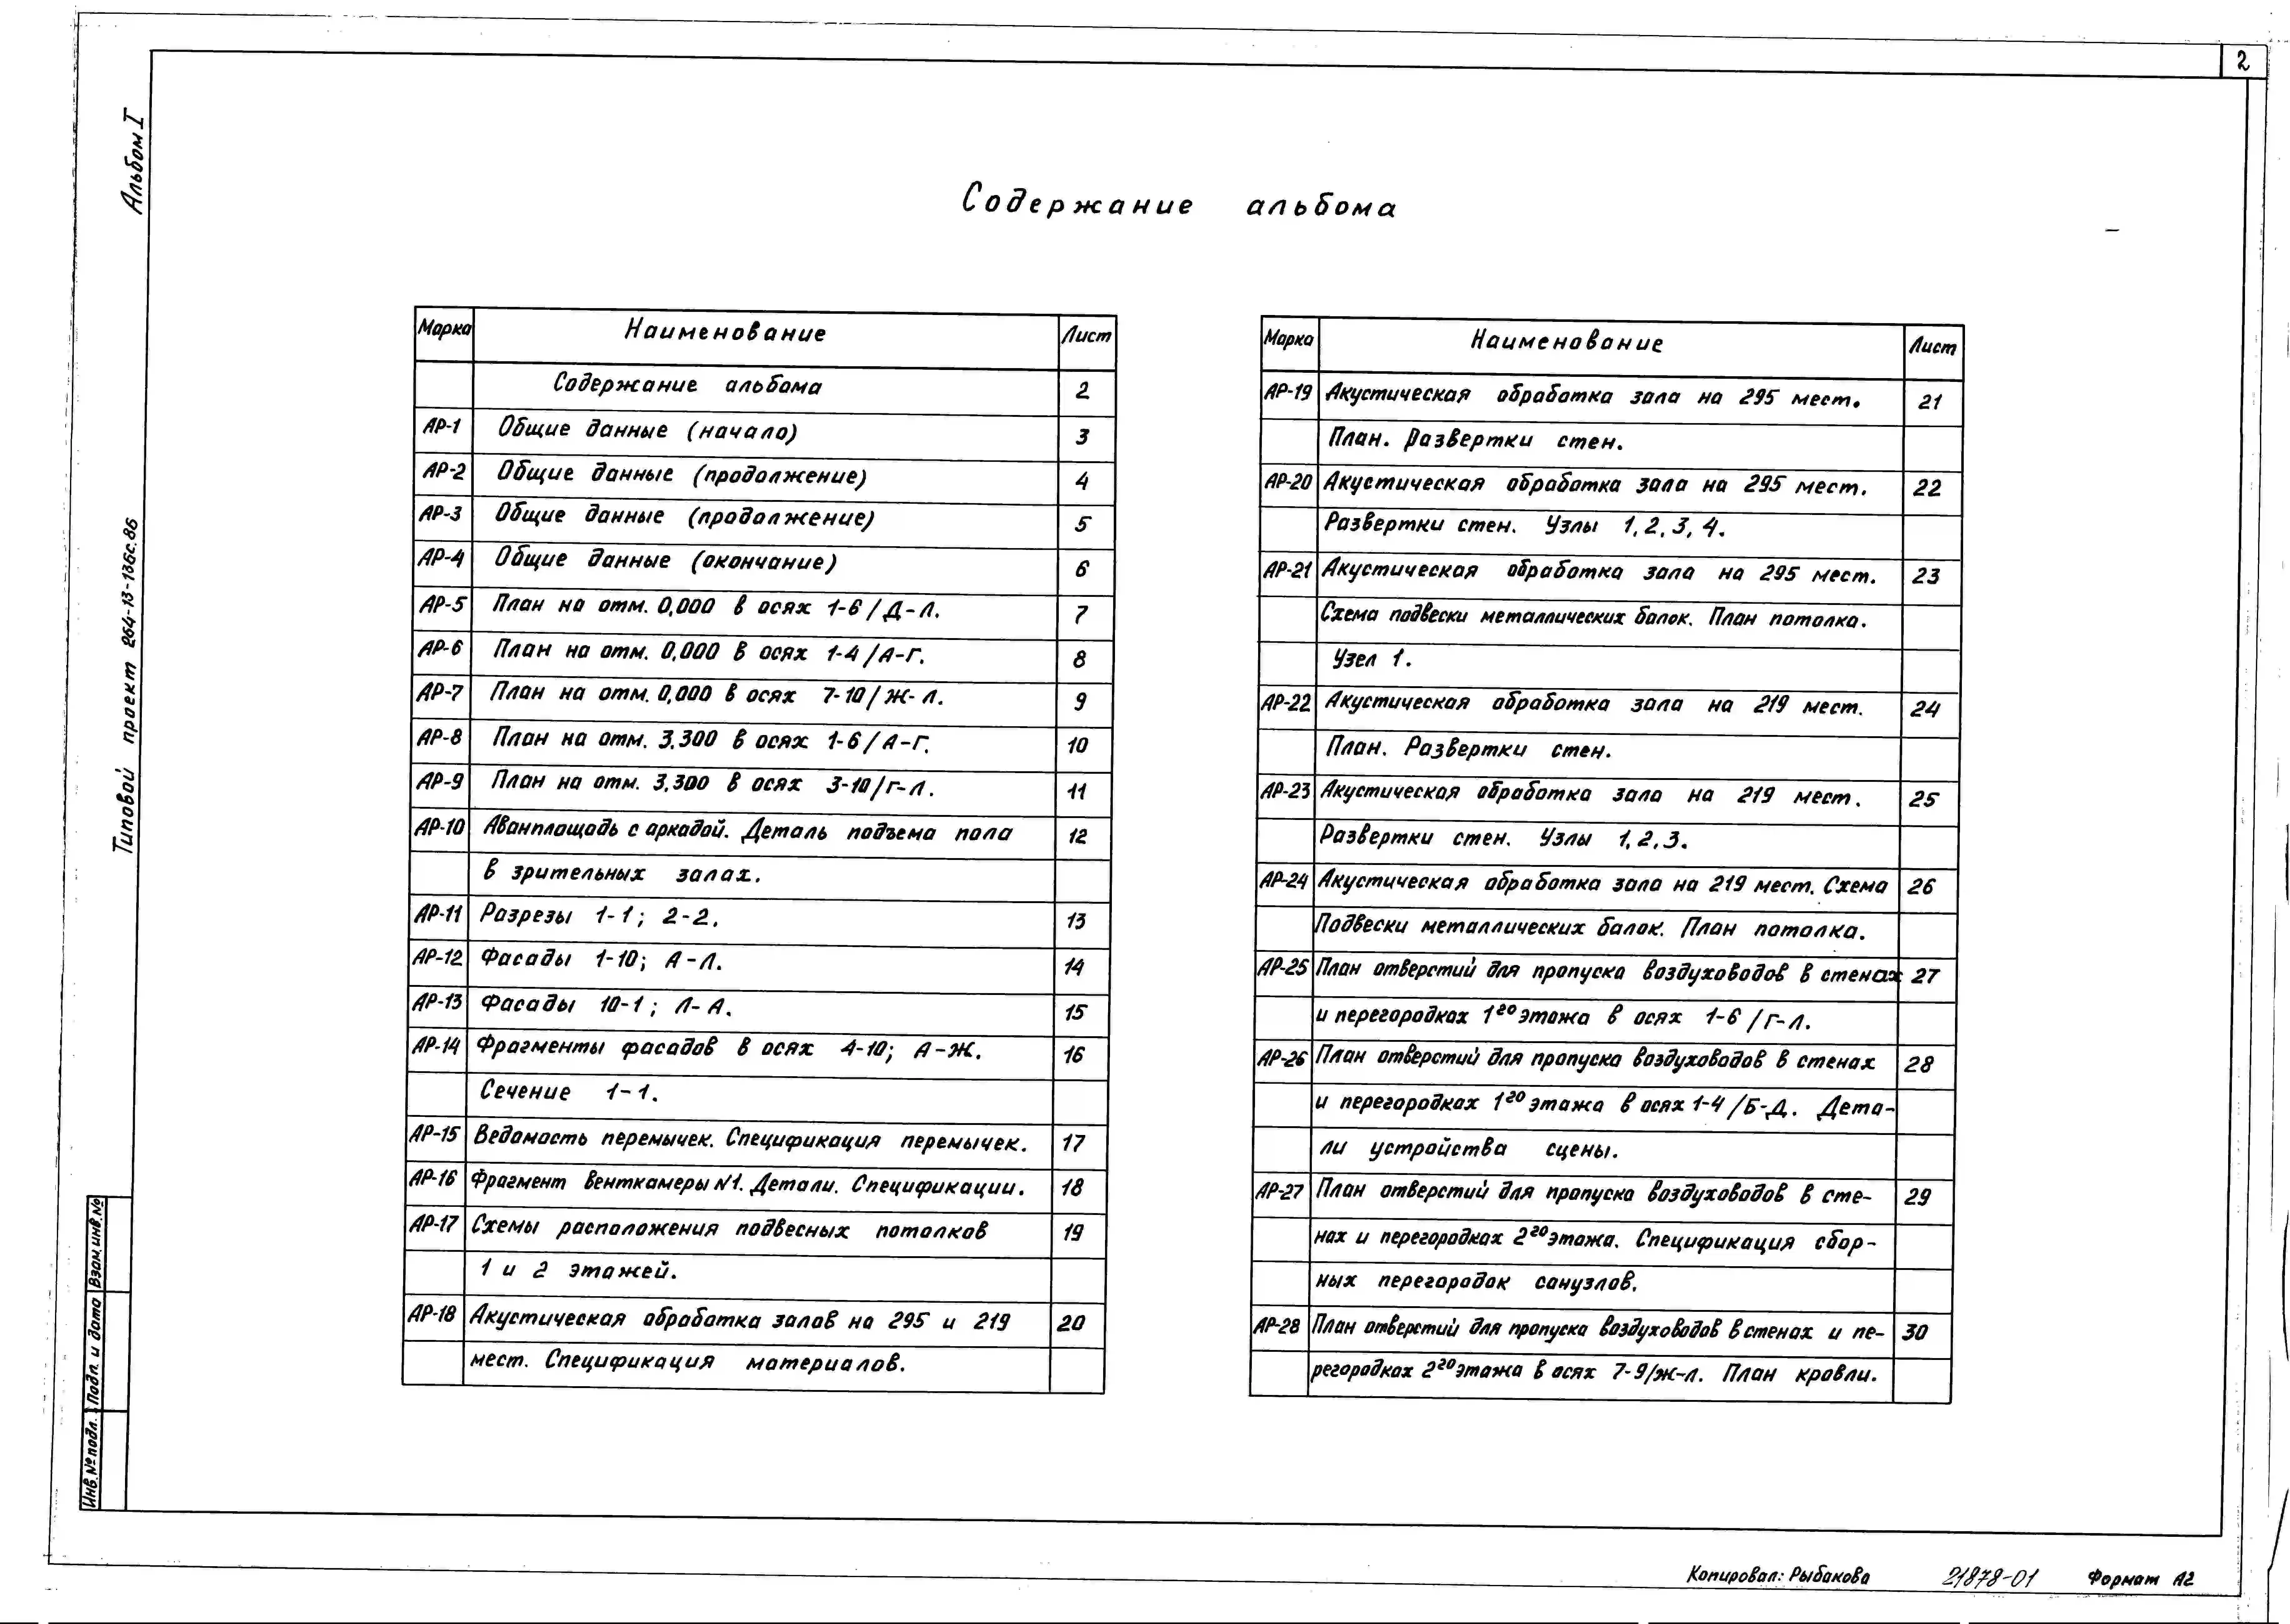 2
Альбом I
Типовой проект 264-13-136с.86
Содержание альбома
Марка Наименование Лист
Содержание альбома 2
АР-1 Общие данные (начало) 3
АР-2 Общие данные (продолжение) 4
АР-3 Общие данные (продолжение) 5
АР-4 Общие данные (окончание) 6
АР-5 План на отм. 0,000 в осях 1-6/Д-Л. 7
АР-6 План на отм. 0,000 в осях 1-4/А-Г. 8
АР-7 План на отм. 0,000 в осях 7-10/Ж-Л. 9
АР-8 План на отм. 3.300 в осях 1-6/А-Г. 10
АР-9 План на отм. 3.300 в осях 3-10/Г-Л. 11
АР-10 Аванплощадь с аркадой. Деталь подъема пола 12
в зрительных залах.
АР-11 Разрезы 1-1; 2-2. 13
АР-12 Фасады 1-10; А-Л. 14
АР-13 Фасады 10-1; Л-А. 15
АР-14 Фрагменты фасадов в осях 4-10; А-Ж. 16
Сечение 1-1.
АР-15 Ведомость перемычек. Спецификация перемычек. 17
АР-16 Фрагмент венткамеры №1. Детали. Спецификации. 18
АР-17 Схемы расположения подвесных потолков 19
1 и 2 этажей.
АР-18 Акустическая обработка залов на 295 и 219 20
мест. Спецификация материалов.
Марка Наименование Лист
АР-19 Акустическая обработка зала на 295 мест. 21
План. Развертки стен.
АР-20 Акустическая обработка зала на 295 мест. 22
Развертки стен. Узлы 1, 2, 3, 4.
АР-21 Акустическая обработка зала на 295 мест. 23
Схема подвески металлических балок. План потолка.
Узел 1.
АР-22 Акустическая обработка зала на 219 мест. 24
План. Развертки стен.
АР-23 Акустическая обработка зала на 219 мест. 25
Развертки стен. Узлы 1, 2, 3.
АР-24 Акустическая обработка зала на 219 мест. Схема 26
Подвески металлических балок. План потолка.
АР-25 План отверстий для пропуска воздуховодов в стенах 27
и перегородках 1го этажа в осях 1-6/Г-Л.
АР-26 План отверстий для пропуска воздуховодов в стенах 28
и перегородках 1го этажа в осях 1-4/Б-Д. Дета-
ли устройства сцены.
АР-27 План отверстий для пропуска воздуховодов в сте- 29
нах и перегородках 2го этажа. Спецификация сбор-
ных перегородок санузлов.
АР-28 План отверстий для пропуска воздуховодов в стенах и пе- 30
регородках 2го этажа в осях 7-9/Ж-Л. План кровли.
Инв. № подл. Подп. и дата Взам. инв. №
Копировал: Рыбакова 21878-01 Формат А2